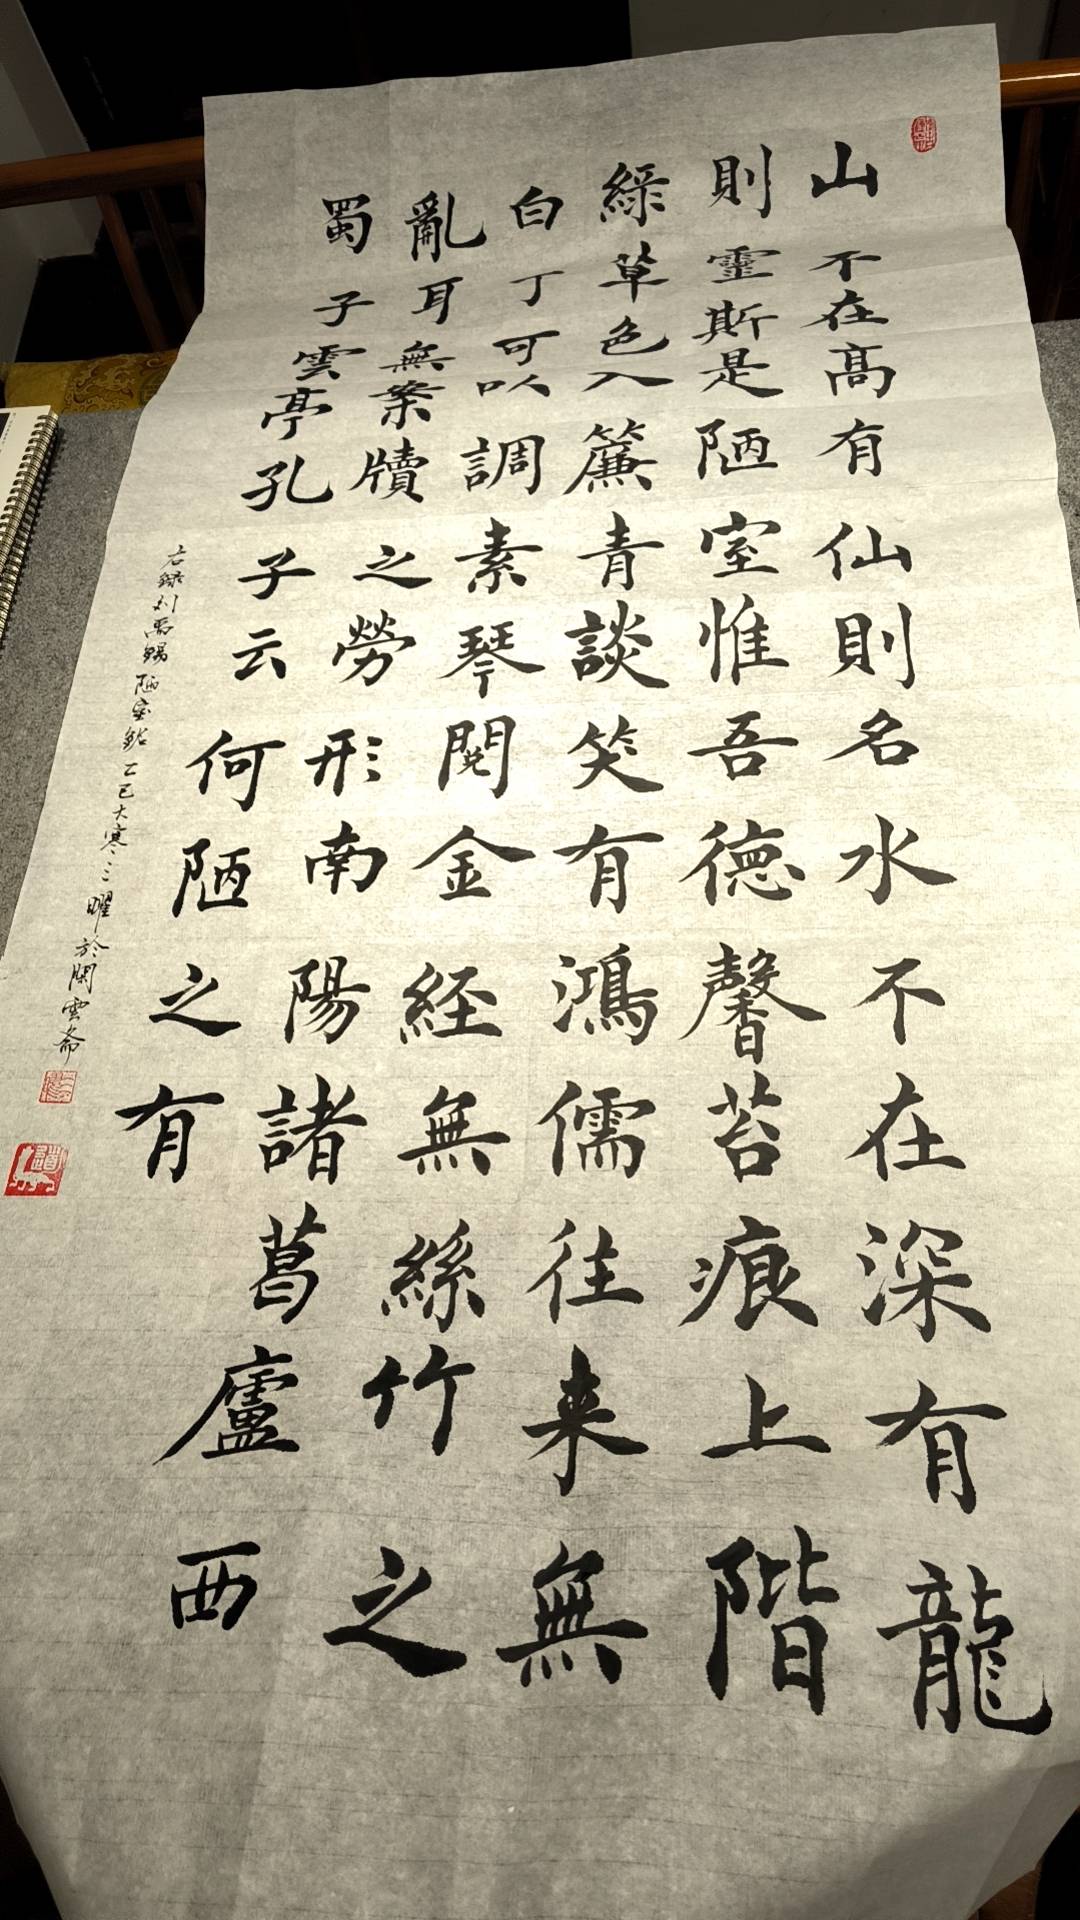 山不在高有仙則名水不在深有龍
則靈斯是陋室惟吾德馨苔痕上階
綠草色入簾青談笑有鴻儒往来無
白丁可以調素琴閱金経無絲竹之
亂耳無案牘之勞形南陽諸葛廬西
蜀子雲亭孔子云何陋之有
右録刘禹錫陋室銘乙巳大寒三曜於閑雲斋